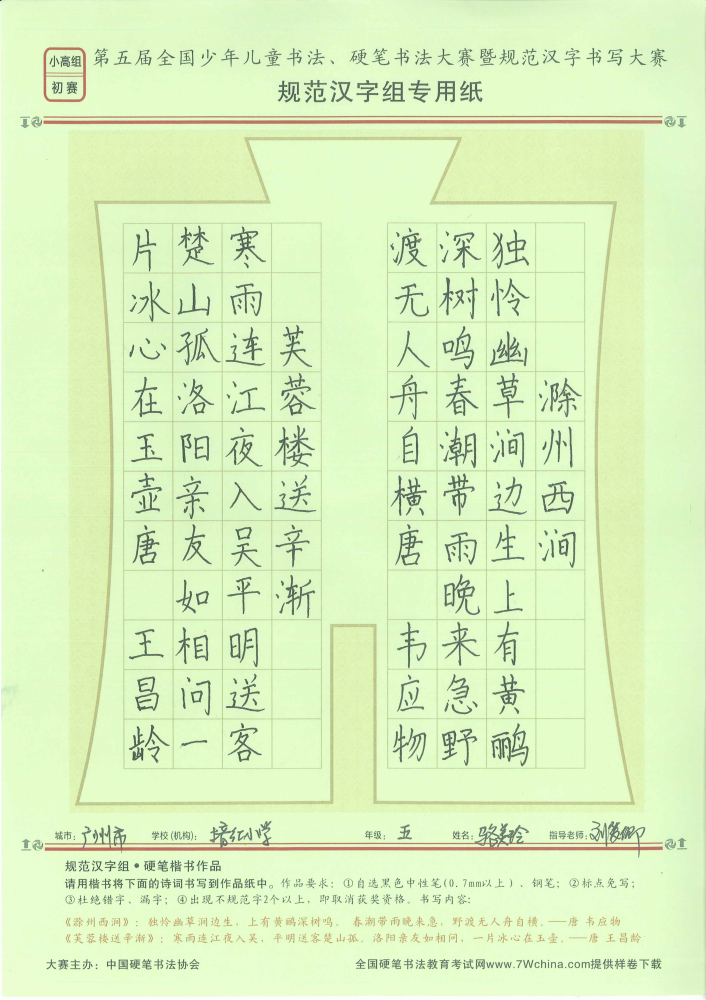 小高组
初赛
第五届全国少年儿童书法、硬笔书法大赛暨规范汉字书写大赛
规范汉字组专用纸
滁州西涧
独怜幽草涧边生上有黄鹂
深树鸣春潮带雨晚来急野
渡无人舟自横唐 韦应物
芙蓉楼送辛渐
寒雨连江夜入吴平明送客
楚山孤洛阳亲友如相问一
片冰心在玉壶唐 王昌龄
城市：广州市 学校(机构)：培红小学 年级：五 姓名：骆 指导老师：刘
规范汉字组●硬笔楷书作品
请用楷书将下面的诗词书写到作品纸中。作品要求：①自选黑色中性笔(0.7mm以上)、钢笔；②标点免写；
③杜绝错字、漏字；④出现不规范字2个以上，即取消获奖资格。书写内容：
《滁州西涧》：独怜幽草涧边生，上有黄鹂深树鸣。 春潮带雨晚来急，野渡无人舟自横。——唐 韦应物
《芙蓉楼送辛渐》：寒雨连江夜入吴，平明送客楚山孤。洛阳亲友如相问，一片冰心在玉壶。——唐 王昌龄
大赛主办：中国硬笔书法协会 全国硬笔书法教育考试网www.7Wchina.com提供样卷下载